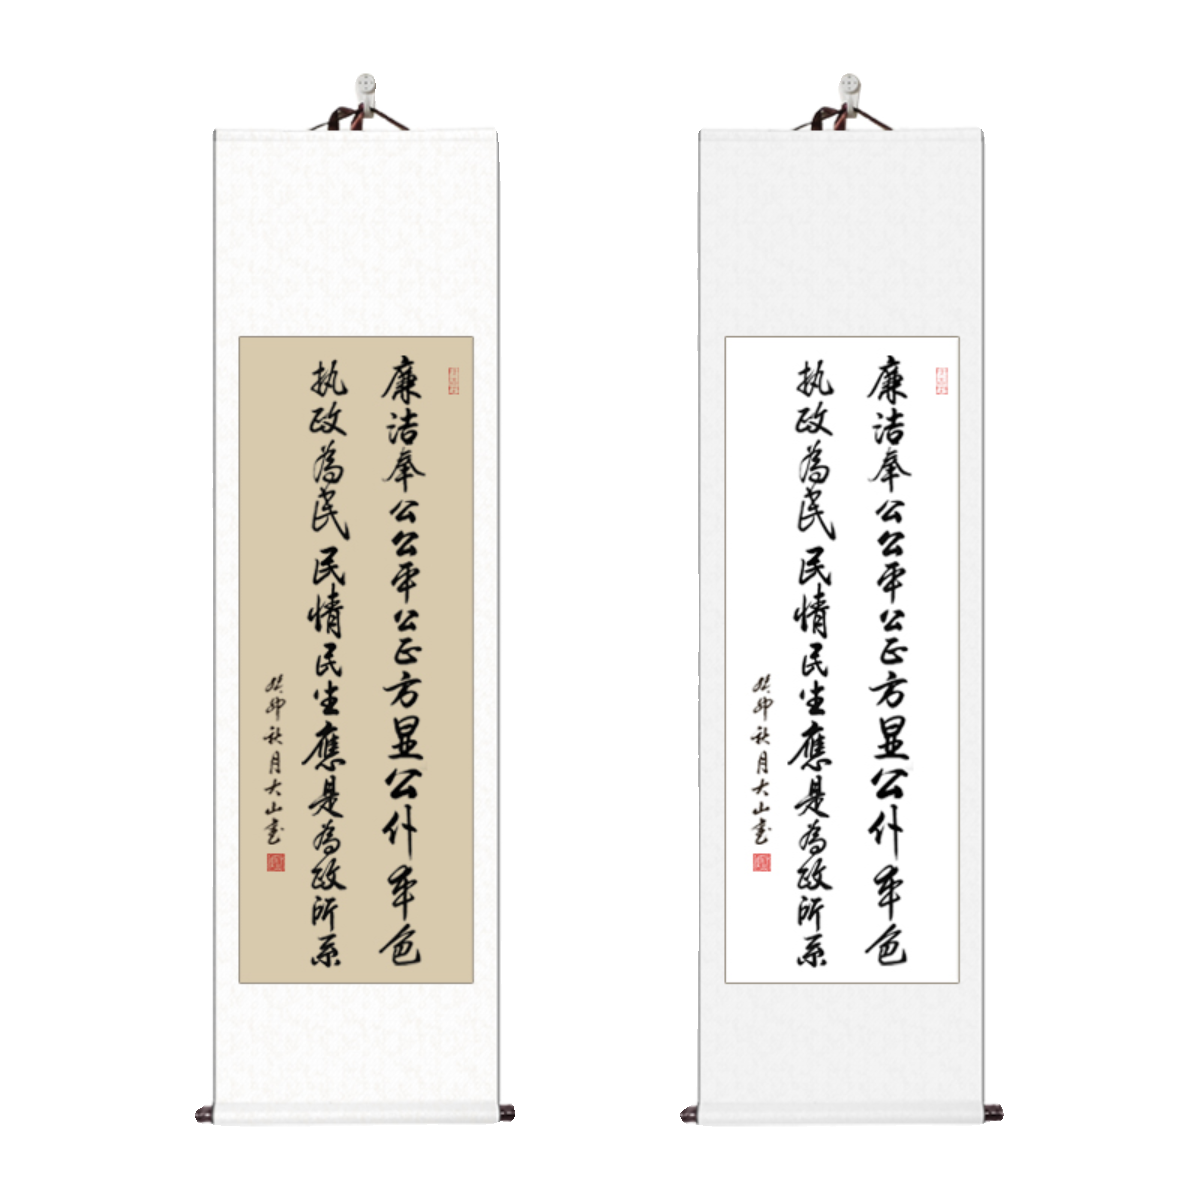 廉洁奉公公平公正方显公仆本色
执政為民民情民生應是為政所系
癸卯秋月大山書
廉洁奉公公平公正方显公仆本色
执政為民民情民生應是為政所系
癸卯秋月大山書